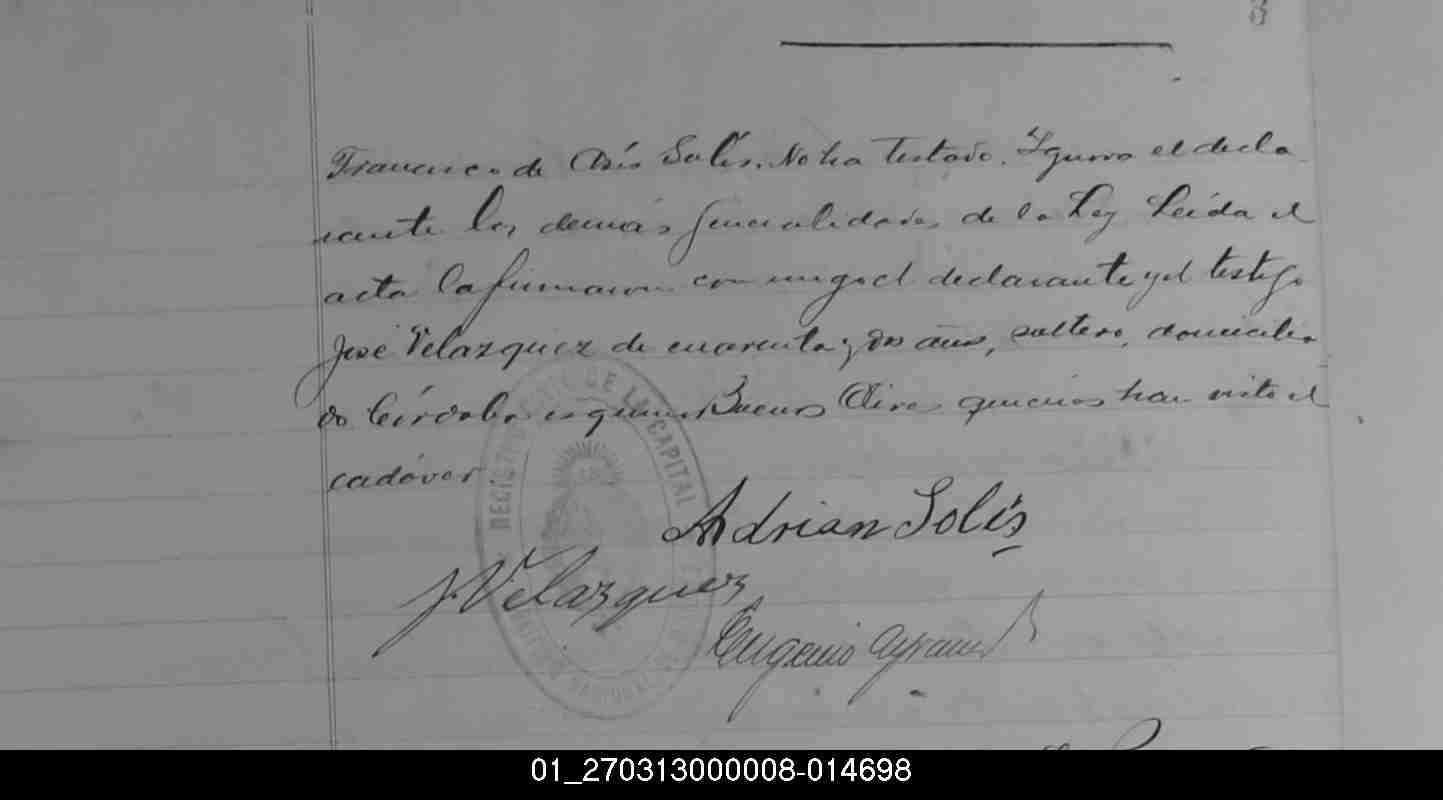 3
Francisco de Asís Solís. No ha testado. Ygnora el decla
rante las demás generalidades de la Ley Leída el
acta la firmaron conmigo el declarante y el testigo
José Velazquez de cuarenta y dos años, soltero, domicilia
do Córdoba esquina Buenos Aires quienes han visto el
cadáver.
Adrian Solís
J. Velazquez
Eugenio
REGISTRO DE LA CAPITAL
NACIONAL
01_270313000008-014698